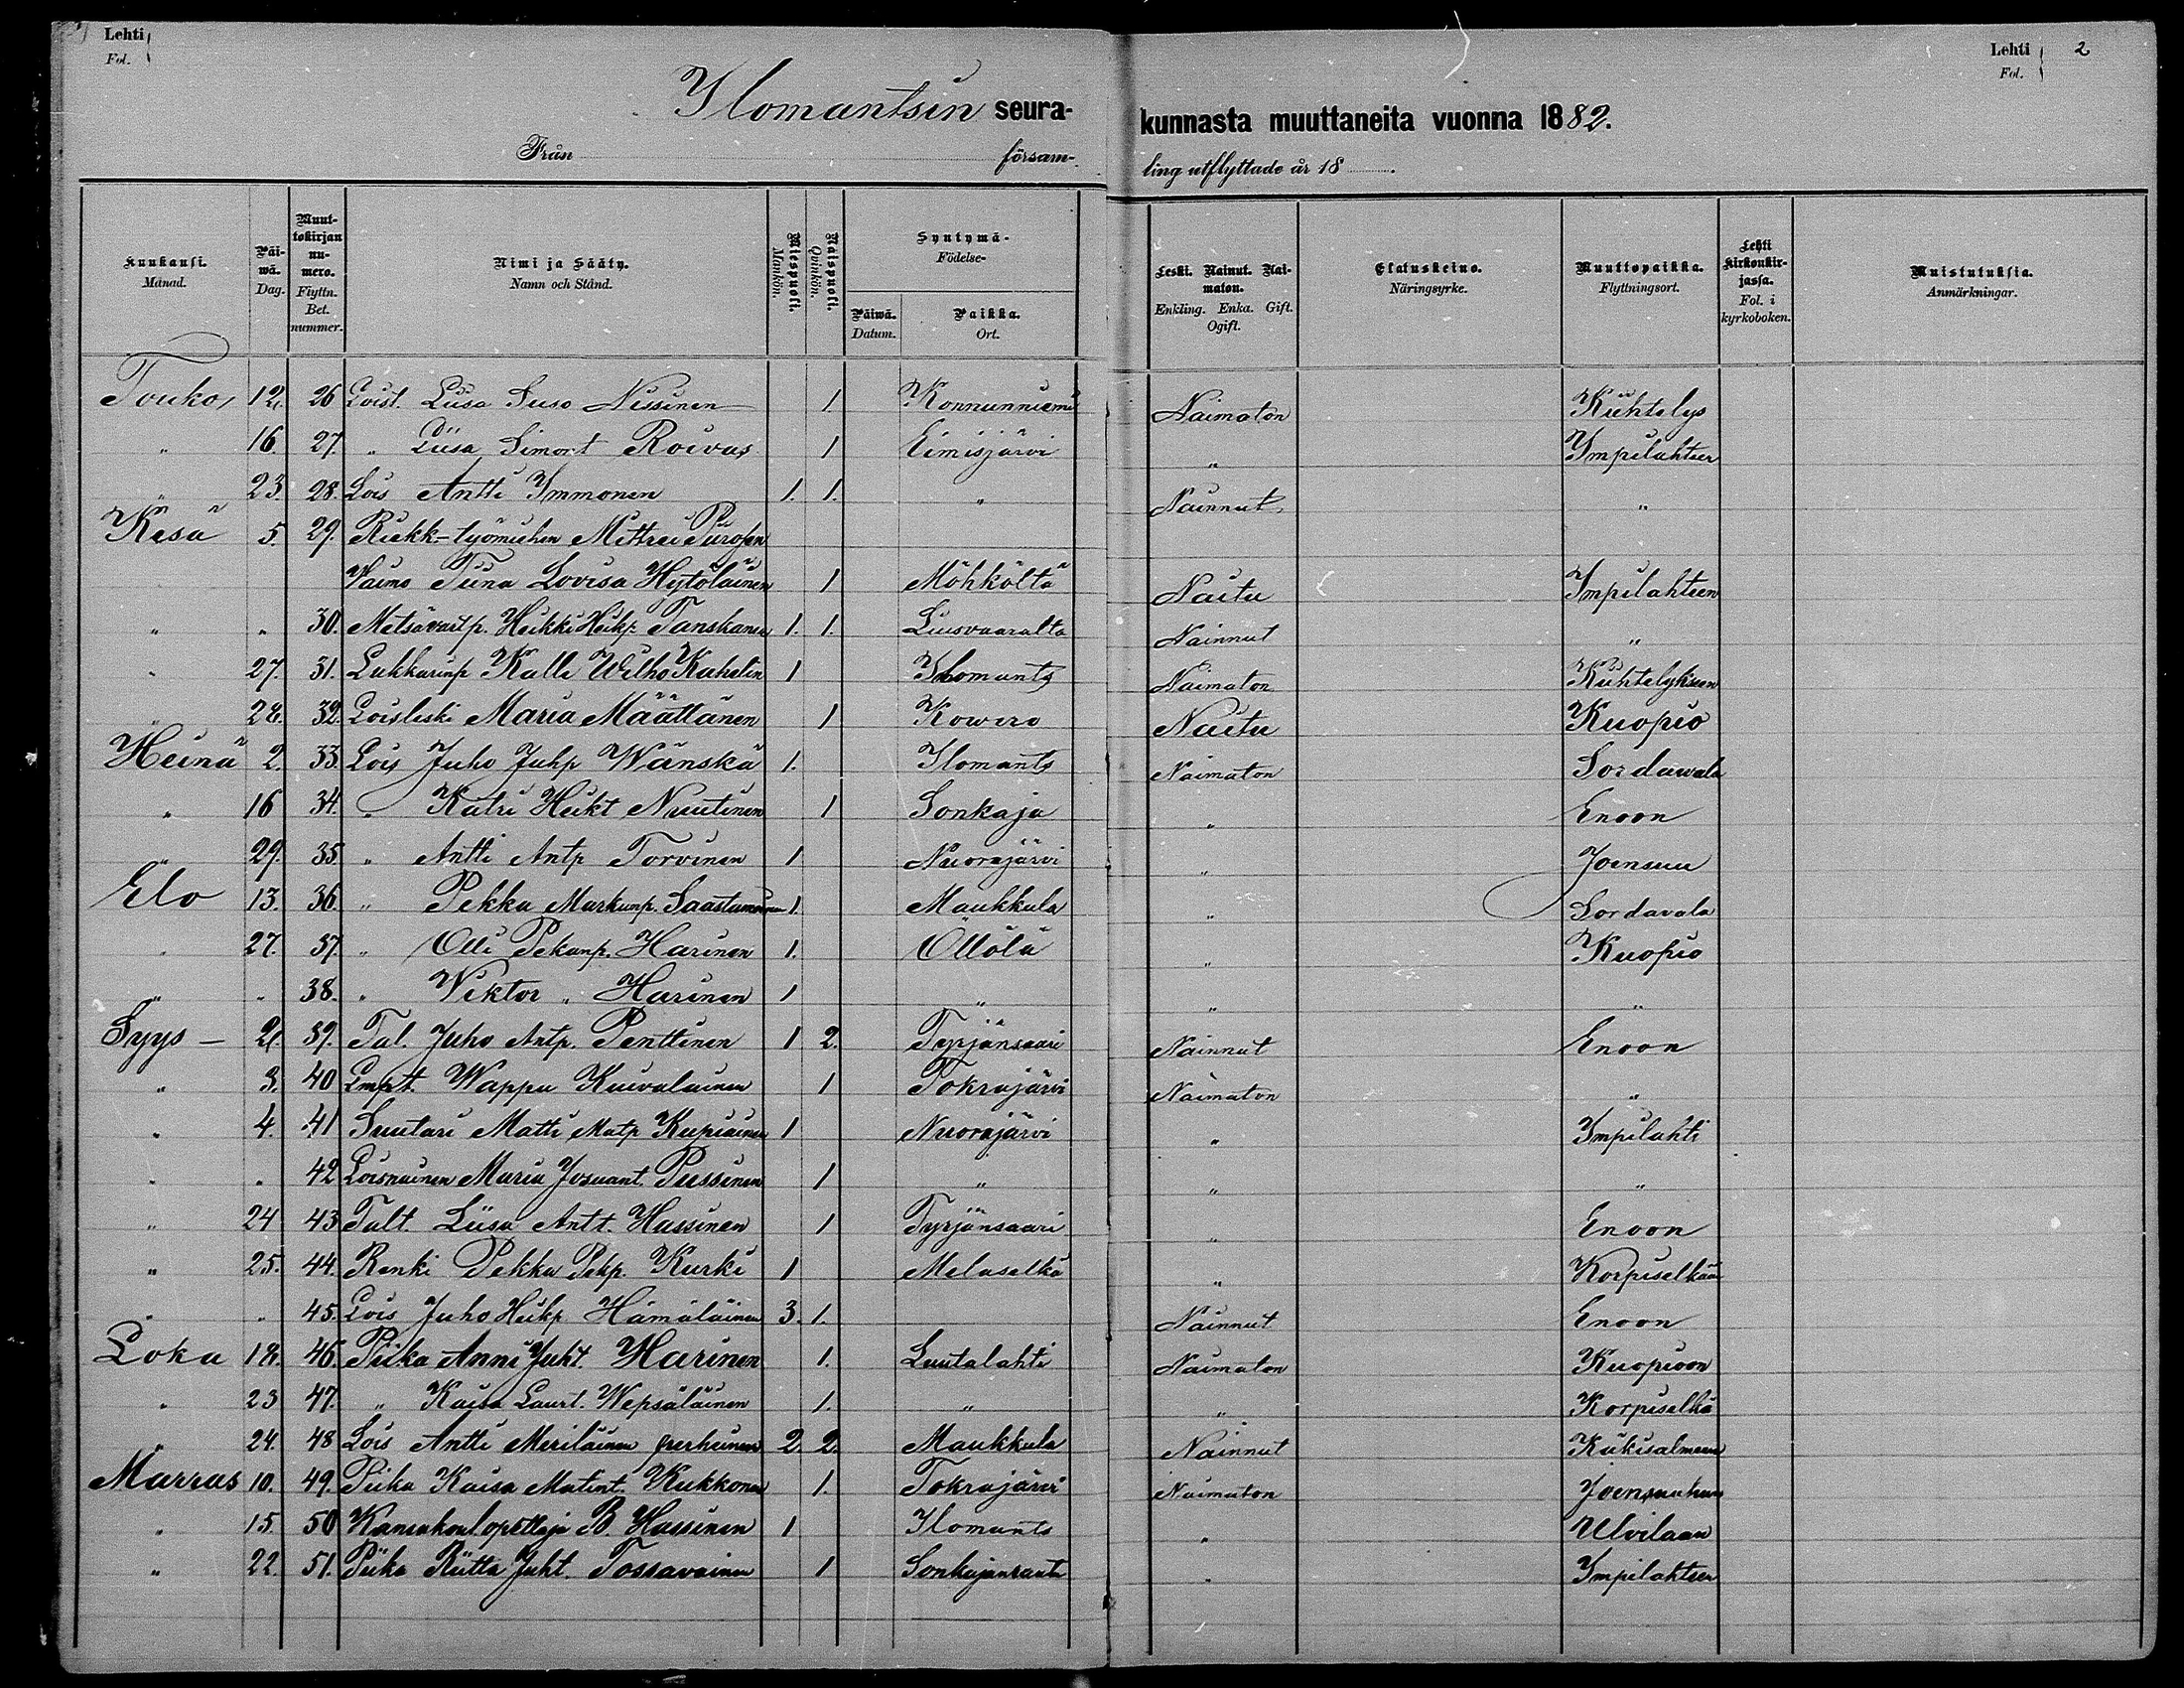 Lehti Fol.
Lehti Fol. 2
Ilomantsin seura-kunnasta muuttaneita vuonna 1882.
Från försam-ling utflyttade år 18 .
Kuukausi. Månad. Päiwä. Dag. Muuttokirjan numero. Flyttn. Bet. nummer. Nimi ja Sääty. Namn och Stånd. Miespuoli. Mankön. Naispuoli. Qvinkön. Syntymä- Födelse- Päiwä. Datum. Paikka. Ort. Leski. Nainut. Naimaton. Enkling. Enka. Gift. Ogift. Elatuskeino. Näringsyrke. Muuttopaikka. Flyttningsort. Lehti kirkonkirjassa. Fol. i kyrkoboken. Muistutuksia. Anmärkningar.
Touko, 12. 26 Loist. Liisa Nissinen 1. Konnunniemi Naimaton Kiihtelys
" 16. 27. " Liisa Simont Roivas 1 Eimisjärvi " Impilahteen
" 23. 28. Lois Antti Immonen 1. 1. " Nainnut "
Kesä 5. 29. Riekk-työmiehen Mittrei Purosen
Vaimo Tiina Lovisa Hytöläinen 1 Möhköltä Naitu Impilahteen
" " 30. Metsävartp. Heikki Heikp. Tanskanen 1. 1. Liusvaaralta Nainnut "
" 27. 31. Lukkarinp Kalle Wilho Kahelin 1 Ilomants Naimaton Kiihtelyksen
" 28. 32. Loisleski Maria Määttänen 1 Kowero Naitu Kuopio
Heinä 2. 33. Lois Juho Juhp Wänskä 1. Ilomants Naimaton Sordawala
" 16 34. " Katri Heikt Nuutinen 1 Sonkaja " Enoon
" 29. 35 " Antti Antp Torvinen 1 Nuorajärvi " Joensuu
Elo 13. 36. " Pekka Markunp. Saastamoinen 1. Maukkula " Sordavala
" 27. 37. " Olli Pekanp. Harinen 1. Ollola " Kuopio
" " 38. " Viktor " Harinen 1 " " "
Syys - 2. 39. Tal. Juho Antp. Penttinen 1 2. Tyrjänsaari Nainnut Enoon
" 3. 40 Wappu Kuivalainen 1 Tokrajärvi Naimaton "
" 4. 41 Suutari Matti Matp Kupiainen 1 Nuorajärvi " Impilahti
" " 42 Loisnainen Maria Josuant. Pussinen 1 " " "
" 24 43 Talt. Liisa Antt. Hassinen 1 Tyrjänsaari " Enoon
" 25. 44. Renki Pekka Pekp. Kurki 1 Melaselkä " Korpiselkään
" " 45. Lois Juho Heikp Hämäläinen 3. 1. Nainnut Enoon
Loka 18. 46. Piika Anni Juht. Harinen 1. Luutalahti Naimaton Kuopioon
" 23 47. " Kaisa Laurt. Wepsäläinen 1. " " Korpiselkä
" 24. 48 Lois Antti Meriläinen perheinen 2. 2. Maukkula Nainnut Käkisalmeen
Marras 10. 49. Piika Kaisa Matint. Kukkonen 1. Tokrajärvi Naimaton Joensuuhun
" 15. 50 Kansakoul. opettaja B. Hassinen 1 Ilomants " Ulvilaan
" 22. 51. Piika Riitta Juht. Tossavainen 1 Sonkajanranta " Impilahteen